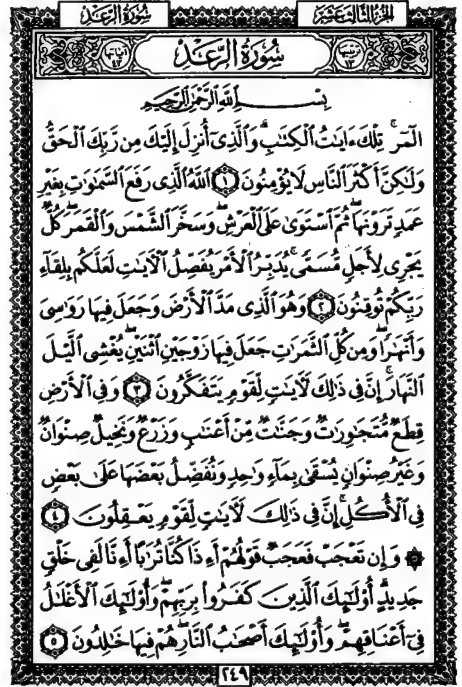 الجزء الثالث عشر
سورة الرعد
سُورَةُ الرَّعْدِ
بِسْمِ اللَّهِ الرَّحْمَٰنِ الرَّحِيمِ
الٓمٓر ۚ تِلْكَ ءَايَٰتُ الْكِتَٰبِ ۗ وَالَّذِىٓ أُنزِلَ إِلَيْكَ مِن رَّبِّكَ الْحَقُّ
وَلَٰكِنَّ أَكْثَرَ النَّاسِ لَا يُؤْمِنُونَ ١ اللَّهُ الَّذِى رَفَعَ السَّمَٰوَٰتِ بِغَيْرِ
عَمَدٍ تَرَوْنَهَا ۖ ثُمَّ اسْتَوَىٰ عَلَى الْعَرْشِ ۖ وَسَخَّرَ الشَّمْسَ وَالْقَمَرَ ۖ كُلٌّ
يَجْرِى لِأَجَلٍ مُّسَمًّى ۚ يُدَبِّرُ الْأَمْرَ يُفَصِّلُ الْءَايَٰتِ لَعَلَّكُم بِلِقَآءِ
رَبِّكُمْ تُوقِنُونَ ٢ وَهُوَ الَّذِى مَدَّ الْأَرْضَ وَجَعَلَ فِيهَا رَوَٰسِىَ
وَأَنْهَٰرًا ۖ وَمِن كُلِّ الثَّمَرَٰتِ جَعَلَ فِيهَا زَوْجَيْنِ اثْنَيْنِ ۖ يُغْشِى الَّيْلَ
النَّهَارَ ۚ إِنَّ فِى ذَٰلِكَ لَءَايَٰتٍ لِّقَوْمٍ يَتَفَكَّرُونَ ٣ وَفِى الْأَرْضِ
قِطَعٌ مُّتَجَٰوِرَٰتٌ وَجَنَّٰتٌ مِّنْ أَعْنَٰبٍ وَزَرْعٌ وَنَخِيلٌ صِنْوَانٌ
وَغَيْرُ صِنْوَانٍ يُسْقَىٰ بِمَآءٍ وَٰحِدٍ وَنُفَضِّلُ بَعْضَهَا عَلَىٰ بَعْضٍ
فِى الْأُكُلِ ۚ إِنَّ فِى ذَٰلِكَ لَءَايَٰتٍ لِّقَوْمٍ يَعْقِلُونَ ٤
۞ وَإِن تَعْجَبْ فَعَجَبٌ قَوْلُهُمْ أَءِذَا كُنَّا تُرَٰبًا أَءِنَّا لَفِى خَلْقٍ
جَدِيدٍ ۗ أُو۟لَٰٓئِكَ الَّذِينَ كَفَرُوا۟ بِرَبِّهِمْ ۖ وَأُو۟لَٰٓئِكَ الْأَغْلَٰلُ
فِىٓ أَعْنَاقِهِمْ ۖ وَأُو۟لَٰٓئِكَ أَصْحَٰبُ النَّارِ ۖ هُمْ فِيهَا خَٰلِدُونَ ٥
٢٤٩